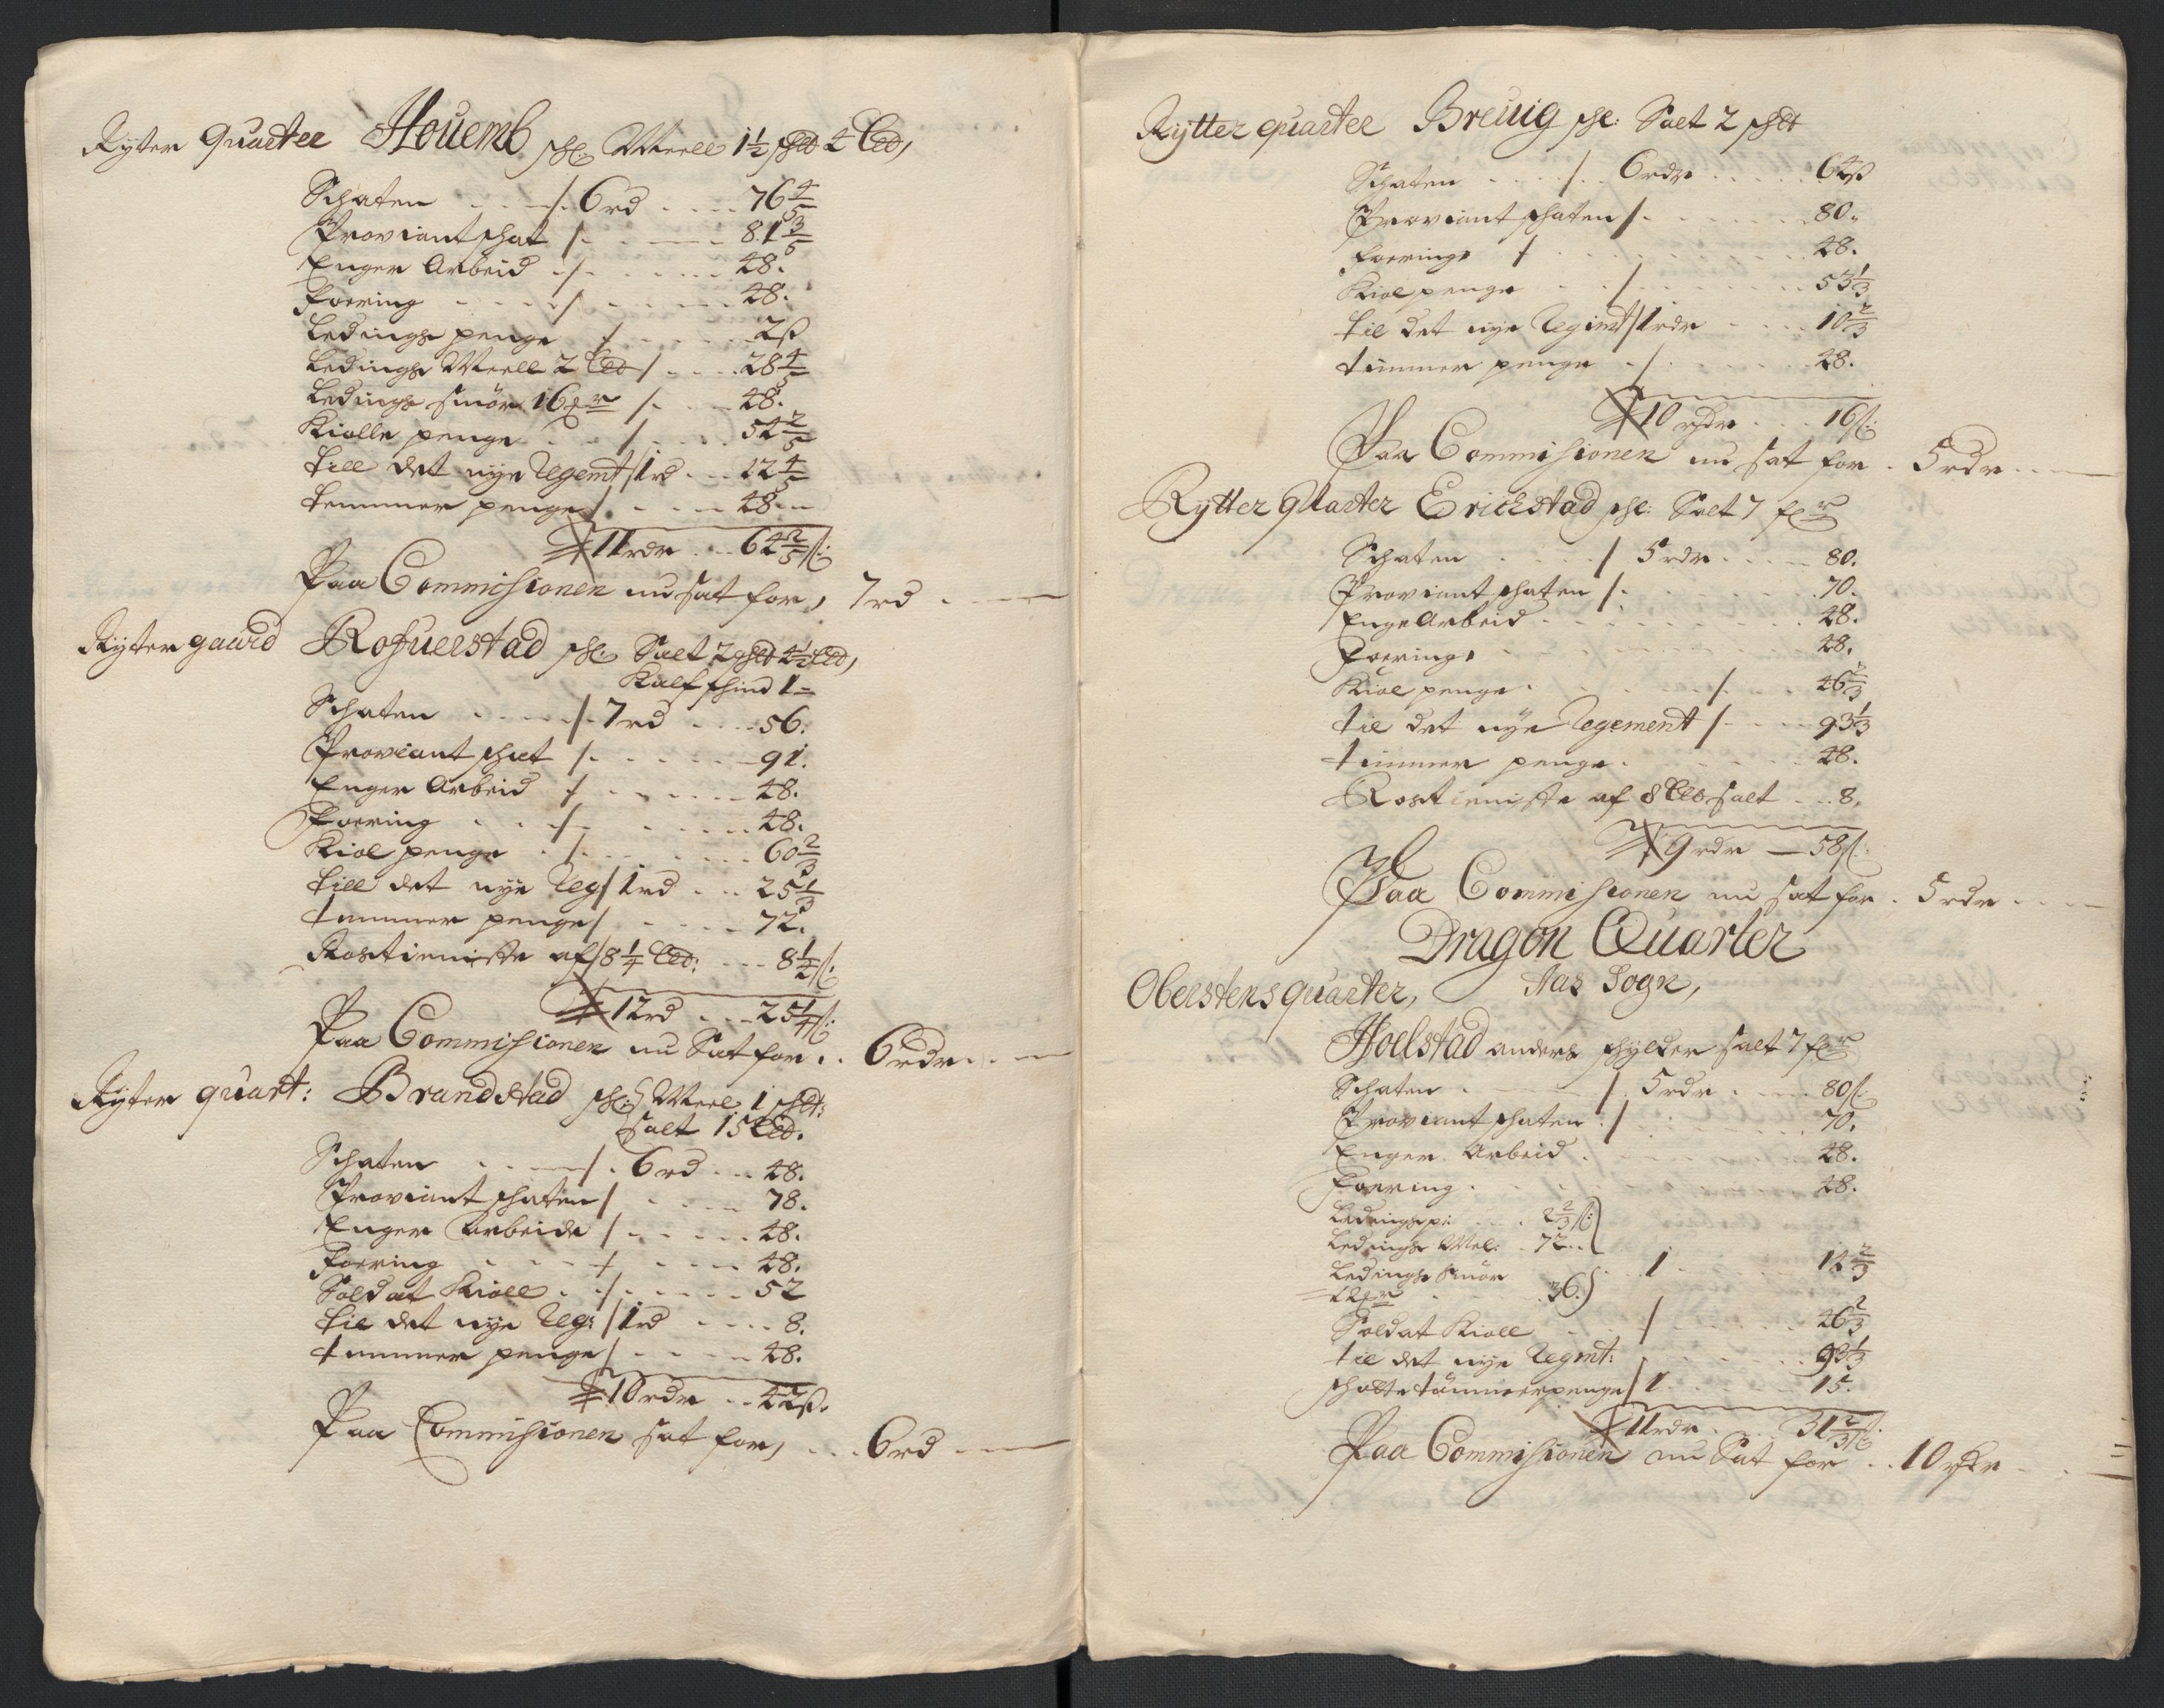 Ryter Quarter Houemb schl: Meell 1½ schlt 4 Led,
Schaten - - - /. 6 rd - - - 76 4/5
Proviant schat /. - - - 81 3/5
Enger Arbeid - /. - - - 48.
Foering - - - / - - - 48.
Ledings penge / - - - 2ß
Ledings Meell 2 Led / - - - 28 4/5
Ledings smör 16 / - - - 48.
Kiolle penge - - / - - - 54 2/5
till det nye Regemt / 1 rd - - - 12 4/5
temmer penge / - - - 48 - -
11 rdr - - - 64 2/5 ß:
Paa Commisionen nu sat for, 7 rd - - -
Ryter gaard Rosuelstad schl: Salt 2 schlt 4½ Led,
Kalfschind 1 =
Schaten - - - /. 7 rd - - - 56.
Proviant schat /. - - - 91.
Enger Arbeid / - - - 48.
Foering - - / - - - 48.
Kiol penge - /. - - - 60 2/3
till det nye Reg / 1 rd - - - 25 1/3
temmer penge / - - - 72.
Rostieniste af / 8 1/4 Led: - - - 8 1/2 ß.
12 rd - - - 25 1/4 ß:
Paa Commisionen nu Sat for - - 6 rdr - - -
Ryter quart: Brandstad schl: Meel 1 schlt:
Salt 15 Led.
Schaten - - - /. 6 rd - - 48.
Proviant schaten / - - - 78.
Enger Arbeide / - - - 48.
Foering - - - / - - - 48.
Soldat Kioll - - / - - - 52
til det nye Reg: / 1 rd - - - 8.
temmer penge / - - - 48.
10 rdr - - 42ß.
Paa Commisionen sat for, - - - 6 rd - - -
Rytter quarter Breuig schl: Salt 2 schlt
Schaten - - - /. - 6 rdr - - - 64ß
Proviant schaten /. - - - 80.
foering / - - - 48.
Kiol penge - - / - - - 53 1/3
til det nye Regimt / 1 rdr - - - 10 2/3
timmer penge - / - - - 48.
10 rdr - - - 16ß:
Paa Commisionen nu sat for - 5 rdr - - -
Rytter Quarter Erichstad schl: Salt 7 fr
Schaten - - - / 5 rdr - - - 80.
Proviant schaten / - - - 70.
Enge Arbeid - - - 48.
Foering - - - 48.
Kiol penge - - - / - - 46 2/3
til det nye Regement / - - - 93 1/3
timmer penge - - - 48.
Rostieniste af 8 Led salt - - 8.
9 rdr — 58ß:
Paa Commisionen nu sat for - 5 rdr - - -
Dragon Quarter
Oberstens quarter, Aas Sogn,
Hoelstad anders schylder salt 7 fr
Schaten - - - /. 5 rdr - - - 80ß:
Proviant schaten / - - - 70.
Enger Arbeid - - - 48.
Foering - - - 48.
Ledings p: - - - 2 2/3 ß:
Ledings Mel: - 72 - -
Ledings Smör - 1 - - - 14 2/3
- - - 36.
Soldat Kioll - - / - - - 46 2/3
til det nye Regmt: - - - 93 1/3
schatte tömmerpenge / 1 - - - 15.
11 rdr - - - 31 2/3 ß:
Paa Commisionen nu Sat for - - 10 rdr - - -